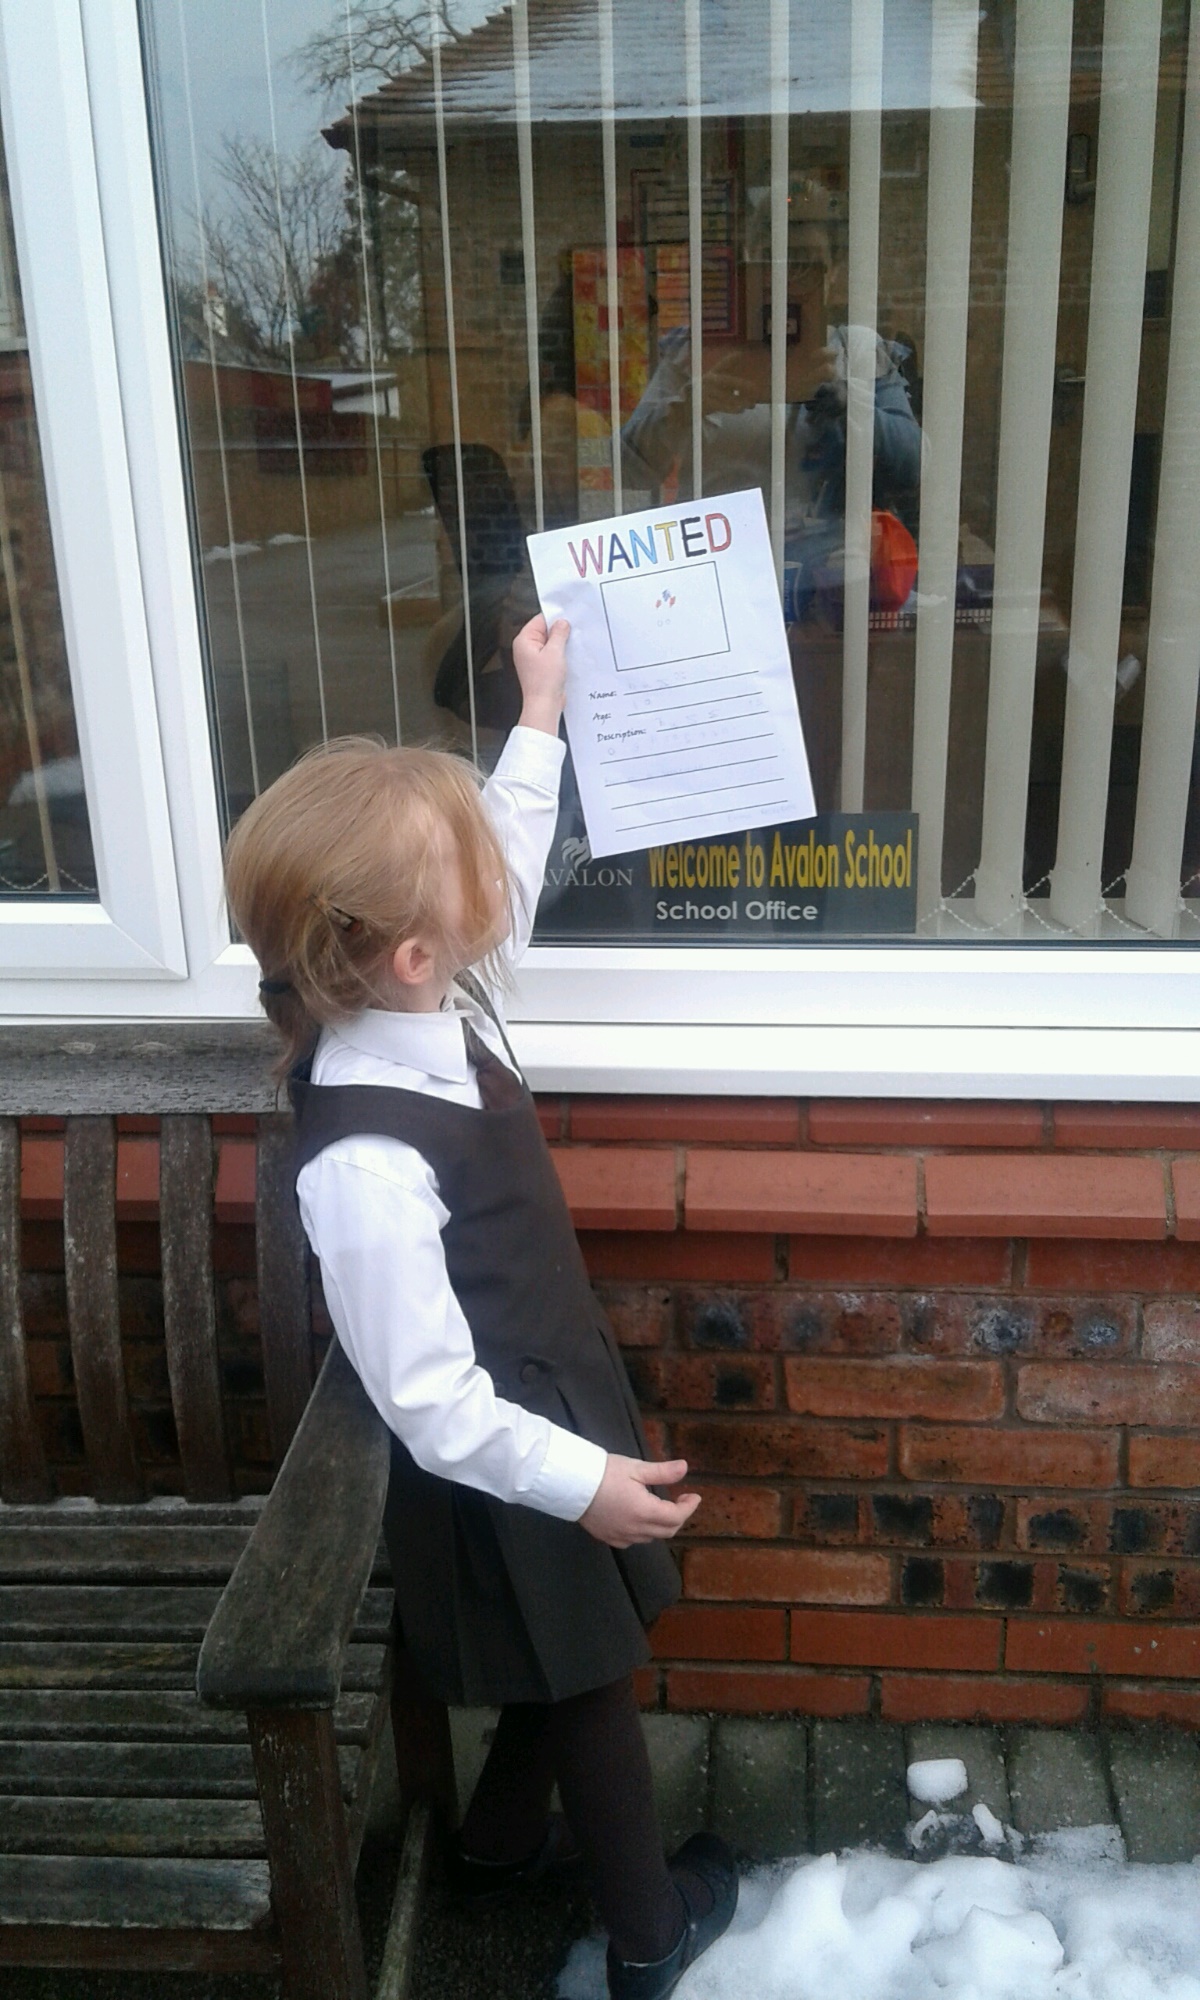 WANTED
Name:
Age:
Description:
AVALON
Welcome to Avalon School
School Office